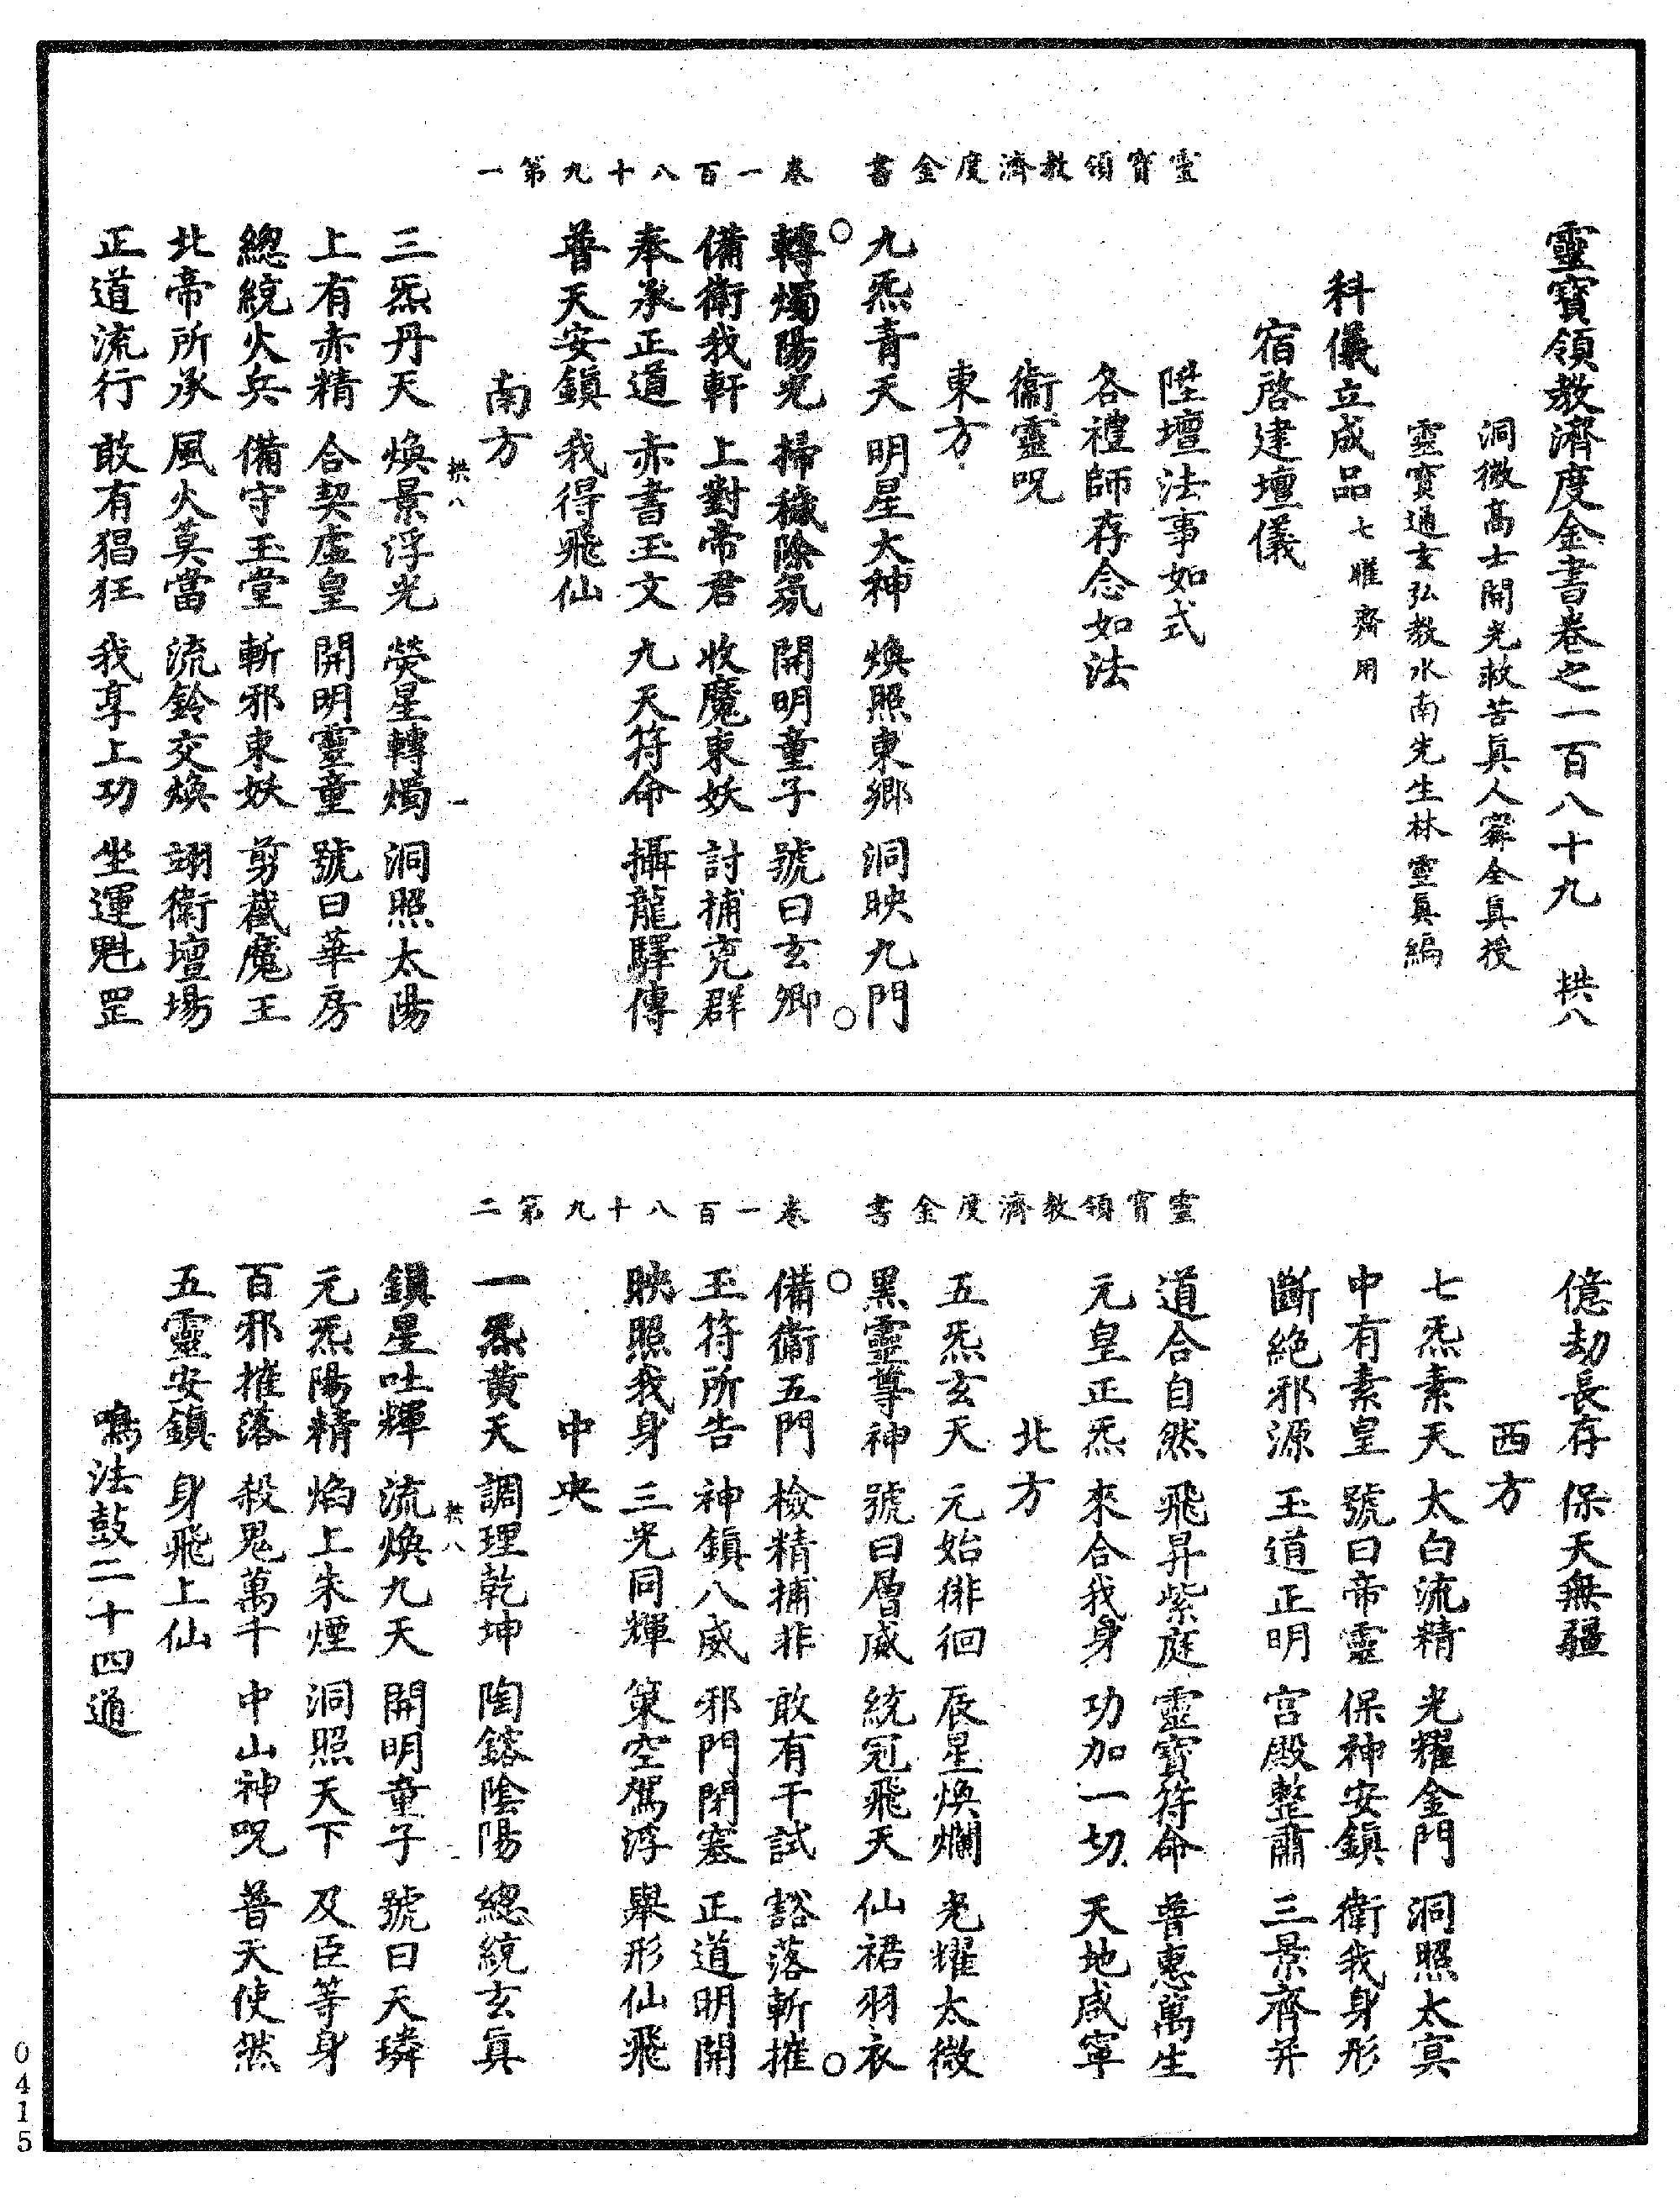 靈寶領教濟度金書　卷一百八十九第一
靈寶領教濟度金書卷之一百八十九　拱八
洞微高士開光救苦眞人寗全真授
靈寶通玄弘教水南先生林靈眞編
科儀立成品　七曜齋用
宿啓建壇儀
陞壇法事如式
各禮師存念如法
衞靈呪
東方
九炁青天　明星大神　煥照東鄉　洞映九門
轉燭陽光　掃穢除氛　開明童子　號曰玄卿
備衛我軒　上對帝君　收魔束妖　討捕兇群
奉承正道　赤書玉文　九天符命　攝龍驛傳
普天安鎮　我得飛仙
南方
拱八　一
三炁丹天　煥景浮光　熒星轉燭　洞照太陽
上有赤精　合契虛皇　開明靈童　號曰華房
總統火兵　備守玉堂　斬邪束妖　剪截魔王
北帝所承　風火莫當　流鈴交煥　翊衛壇場
正道流行　敢有猖狂　我享上功　坐運魁罡
靈寶領教濟度金書　卷一百八十九第二
億劫長存　保天無疆
西方
七炁素天　太白流精　光耀金門　洞照太冥
中有素皇　號曰帝靈　保神安鎮　衛我身形
斷絕邪源　玉道正明　宮殿整肅　三景齊并
道合自然　飛昇紫庭　靈寶符命　普惠萬生
元皇正炁　來合我身　功加一切　天地咸寧
北方
五炁玄天　元始徘徊　辰星煥爛　光耀太微
黑靈尊神　號曰層威　統冠飛天　仙裙羽衣
備衞五門　檢精捕非　敢有干試　豁落斬摧
玉符所告　神鎮八威　邪門閉塞　正道明開
映照我身　三光同輝　策空駕浮　舉形仙飛
中央
一炁黄天　調理乾坤　陶鎔陰陽　總統玄真
拱八　二
鎮星吐輝　流煥九天　開明童子　號曰天璘
元炁陽精　焰上朱煙　洞照天下　及臣等身
百邪摧落　殺鬼萬千　中山神呪　普天使然
五靈安鎮　身飛上仙
鳴法鼓二十四通
0415